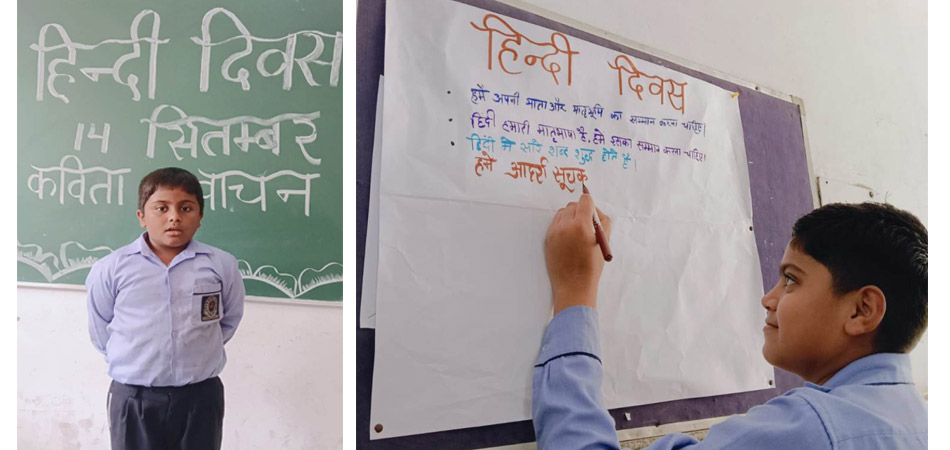 हिन्दी दिवस
14 सितम्बर
कविता वाचन
हिन्दी दिवस
हमें अपनी माता और मातृभूमि का सम्मान करना चाहिए।
हिंदी हमारी मातृभाषा है, हमे इसका सम्मान करना चाहिए।
हिंदी में सारे शब्द शुद्ध होते है।
हमे आदर्श सूचक